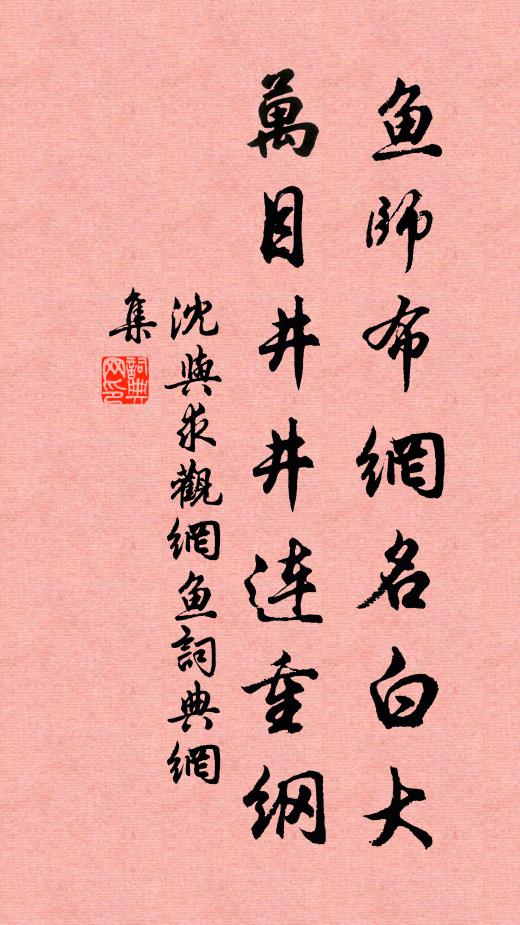 鱼師布網名白大
萬目井井連重綱
沈與求觀網鱼詞典網
集
詞典
网印